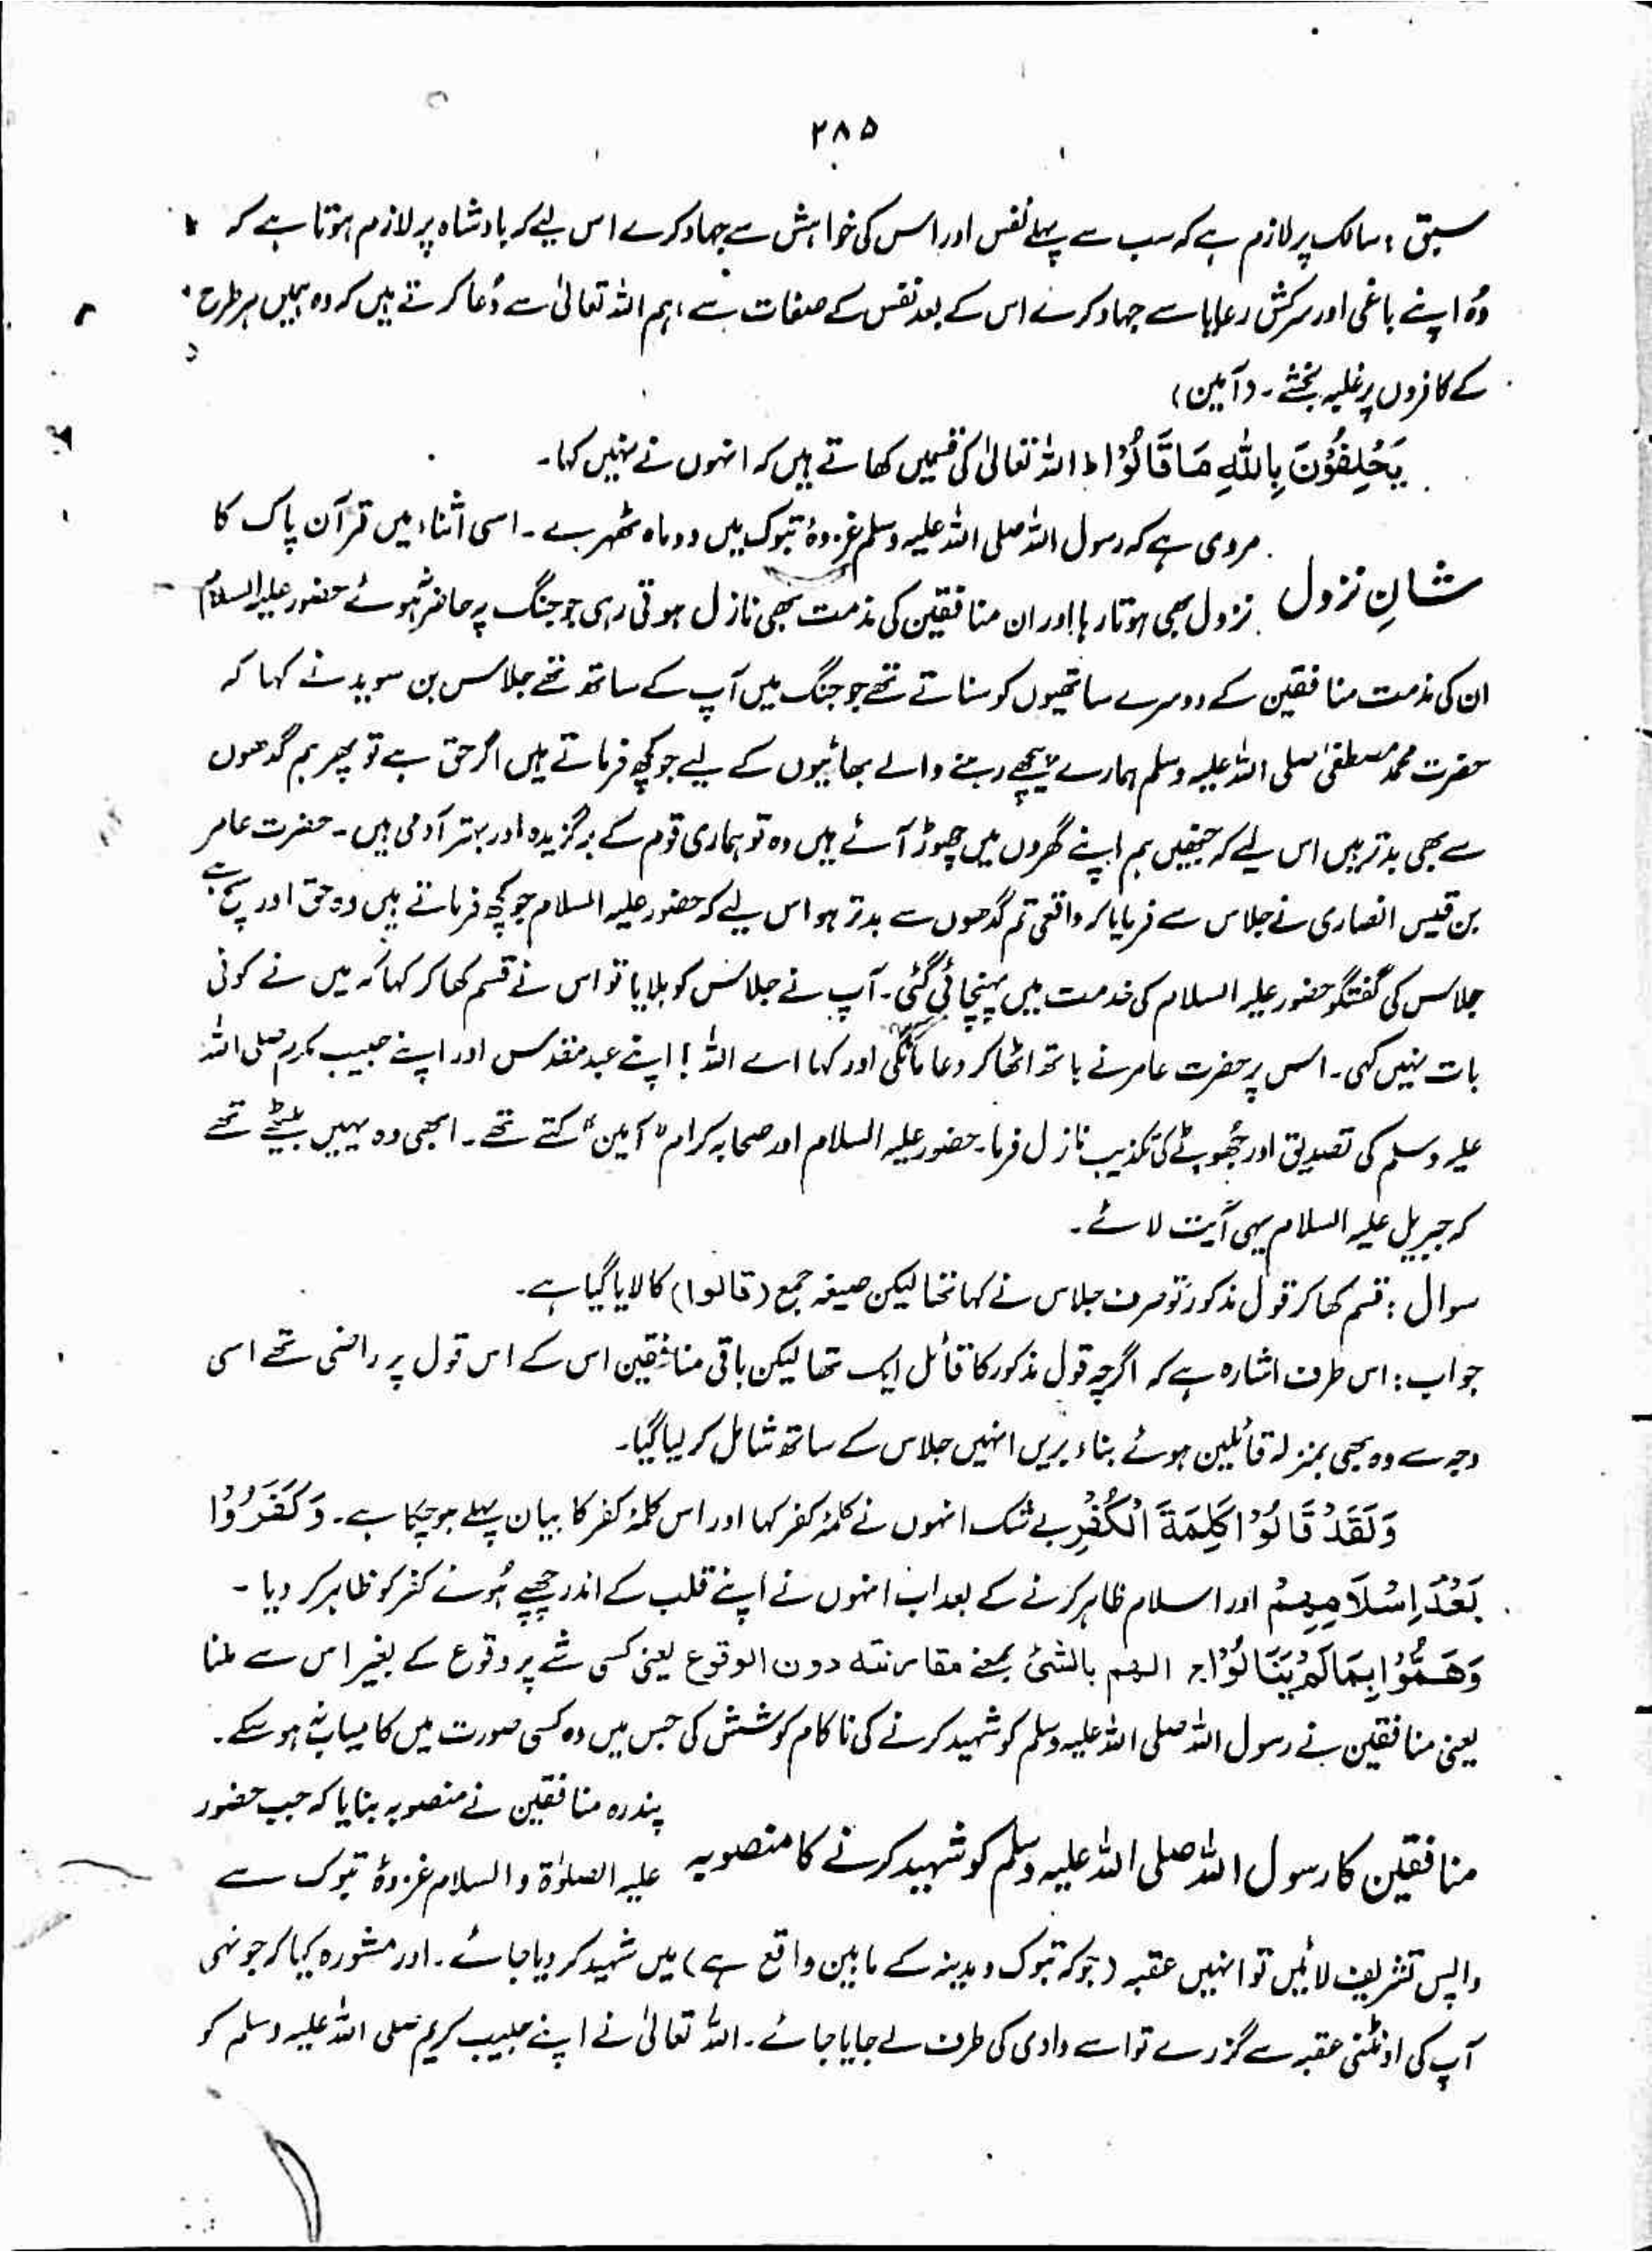 ۲۸۵
سبق : سالک پر لازم ہے کہ سب سے پہلے نفس اور اس کی خواہش سے جہاد کرے اس لیے کہ بادشاہ پر لازم ہوتا ہے کہ
وُہ اپنے باغی اور سرکش رعایا سے جہاد کرے اس کے بعد نفس کے صفات سے ، ہم اللہ تعالیٰ سے دُعا کرتے ہیں کہ وہ ہمیں ہر طرح
کے کافروں پر غلبہ بخشے ۔ (آمین)
يَحْلِفُوْنَ بِاللّٰهِ مَا قَالُوْا ط اللہ تعالیٰ کی قسمیں کھاتے ہیں کہ انہوں نے نہیں کہا ۔
شانِ نزول مروی ہے کہ رسول اللہ صلی اللہ علیہ وسلم غزوۂ تبوک میں دو ماہ ٹھہرے ۔ اسی اثناء میں قرآن پاک کا
نزول بھی ہوتا رہا اور ان منافقین کی مذمت بھی نازل ہوتی رہی جو جنگ پر حاضر نہ ہوئے حضور علیہ السلام
ان کی مذمت منافقین کے دوسرے ساتھیوں کو سناتے تھے جو جنگ میں آپ کے ساتھ تھے جلاس بن سوید نے کہا کہ
حضرت محمد مصطفیٰ صلی اللہ علیہ وسلم ہمارے پیچھے رہنے والے بھائیوں کے لیے جو کچھ فرماتے ہیں اگر حق ہے تو پھر ہم گدھوں
سے بھی بدتر ہیں اس لیے کہ جنھیں ہم اپنے گھروں میں چھوڑ آئے ہیں وہ تو ہماری قوم کے برگزیدہ اور بہتر آدمی ہیں ۔ حضرت عامر
بن قیس انصاری نے جلاس سے فرمایا کہ واقعی تم گدھوں سے بدتر ہو اس لیے کہ حضور علیہ السلام جو کچھ فرماتے ہیں وہ حق اور سچ ہے
جلاس کی گفتگو حضور علیہ السلام کی خدمت میں پہنچائی گئی ۔ آپ نے جلاس کو بلایا تو اس نے قسم کھا کر کہا کہ میں نے کوئی
بات نہیں کہی ۔ اس پر حضرت عامر نے ہاتھ اٹھا کر دعا مانگی اور کہا اے اللہ ! اپنے عبد مقدس اور اپنے حبیب مکرم صلی اللہ
علیہ وسلم کی تصدیق اور جُھوٹے کی تکذیب نازل فرما ۔ حضور علیہ السلام اور صحابہ کرام " آمین " کہتے تھے ۔ ابھی وہ یہیں بیٹھے تھے
کہ جبریل علیہ السلام یہی آیت لائے ۔
سوال : قسم کھا کر قول مذکور تو صرف جلاس نے کہا تھا لیکن صیغہ جمع (قالوا) کا لایا گیا ہے ۔
جواب : اس طرف اشارہ ہے کہ اگرچہ قول مذکور کا قائل ایک تھا لیکن باقی منافقین اس کے اس قول پر راضی تھے اسی
وجہ سے وہ بھی بمنزلہ قائلین ہوئے بناء بریں انہیں جلاس کے ساتھ شامل کر لیا گیا ۔
وَلَقَدْ قَالُوْا كَلِمَةَ الْكُفْرِ بے شک انہوں نے کلمۂ کفر کہا اور اس کلمۂ کفر کا بیان پہلے ہو چکا ہے ۔ وَكَفَرُوْا
بَعْدَ اِسْلَامِهِمْ اور اسلام ظاہر کرنے کے بعد اب انہوں نے اپنے قلب کے اندر چھپے ہُوئے کفر کو ظاہر کر دیا ۔
وَهَمُّوْا بِمَا لَمْ يَنَالُوْا ج الھم بالشئ بمعنے مقارنتہ دون الوقوع یعنی کسی شے پر وقوع کے بغیر اس سے ملنا
یعنی منافقین نے رسول اللہ صلی اللہ علیہ وسلم کو شہید کرنے کی ناکام کوشش کی جس میں وہ کسی صورت میں کامیاب نہ ہو سکے ۔
منافقین کا رسول اللہ صلی اللہ علیہ وسلم کو شہید کرنے کا منصوبہ پندرہ منافقین نے منصوبہ بنایا کہ جب حضور
علیہ الصلوٰۃ والسلام غزوۂ تبوک سے
واپس تشریف لائیں تو انہیں عقبہ (جو کہ تبوک و مدینہ کے مابین واقع ہے) میں شہید کر دیا جائے ۔ اور مشورہ کیا کہ جونہی
آپ کی اونٹنی عقبہ سے گزرے تو اسے وادی کی طرف لے جایا جائے ۔ اللہ تعالیٰ نے اپنے حبیب کریم صلی اللہ علیہ وسلم کو